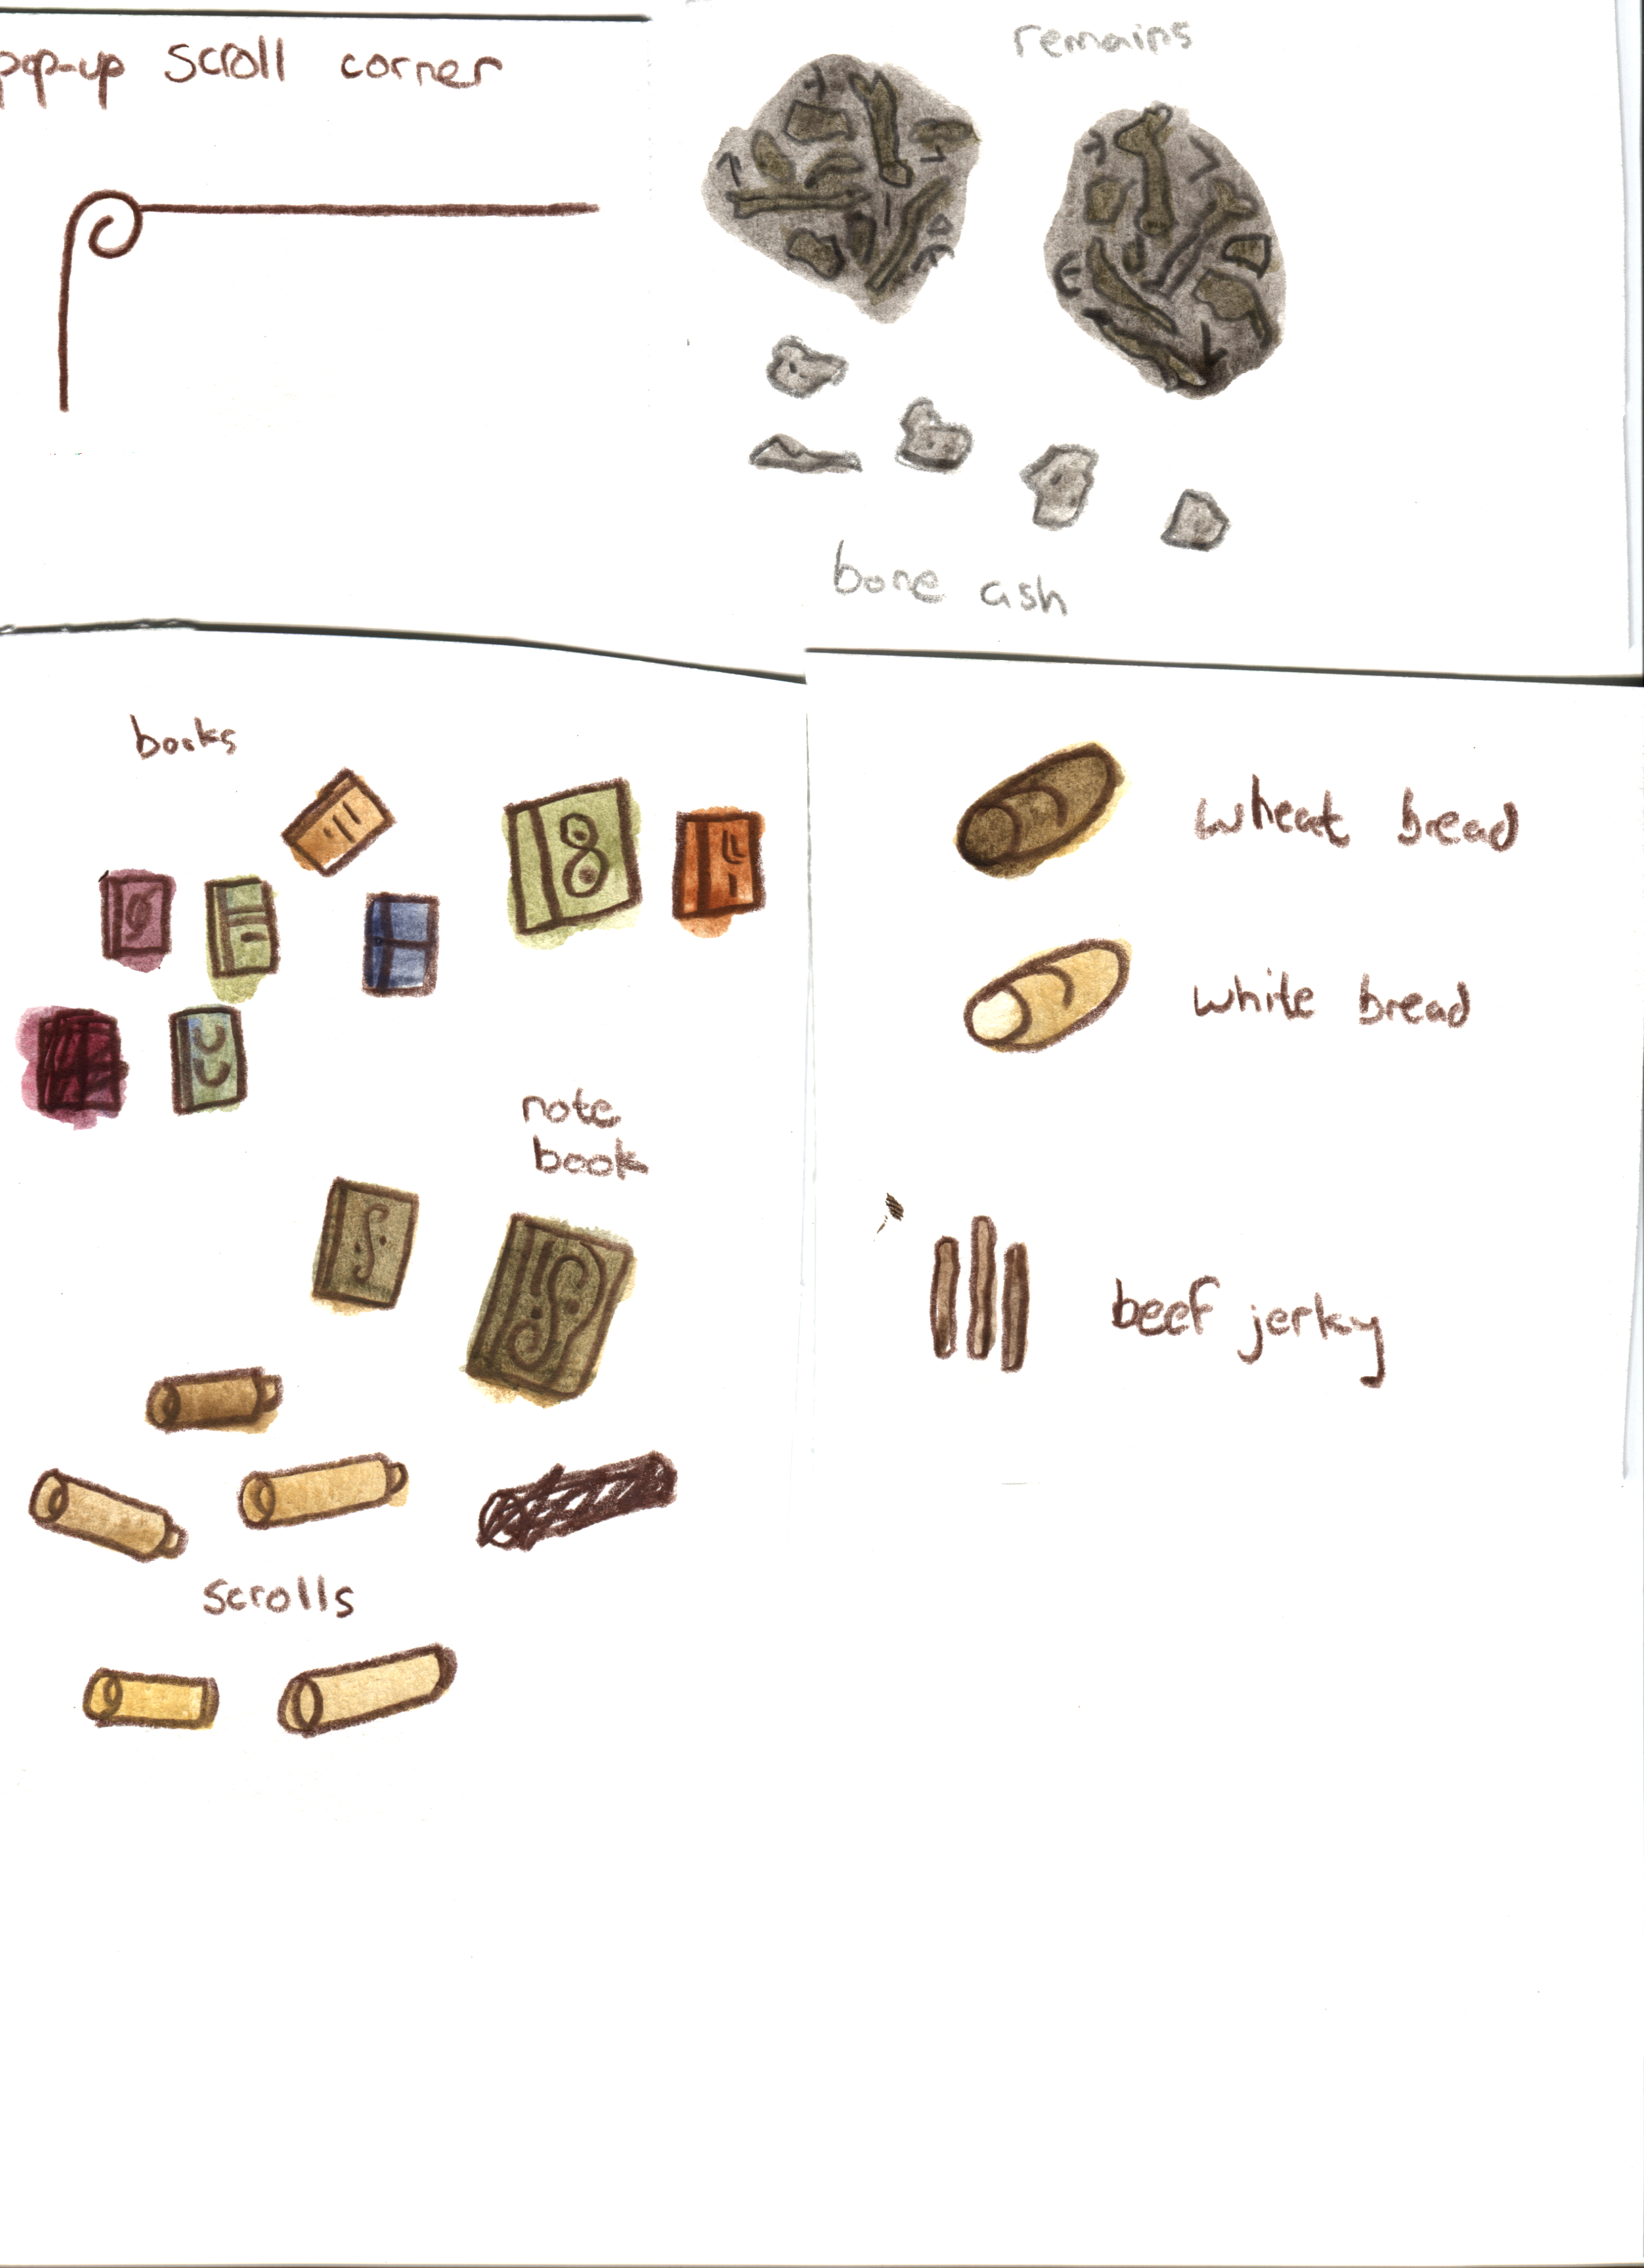 pop-up scroll corner
remains
bone ash
books
note
book
scrolls
wheat bread
white bread
beef jerky